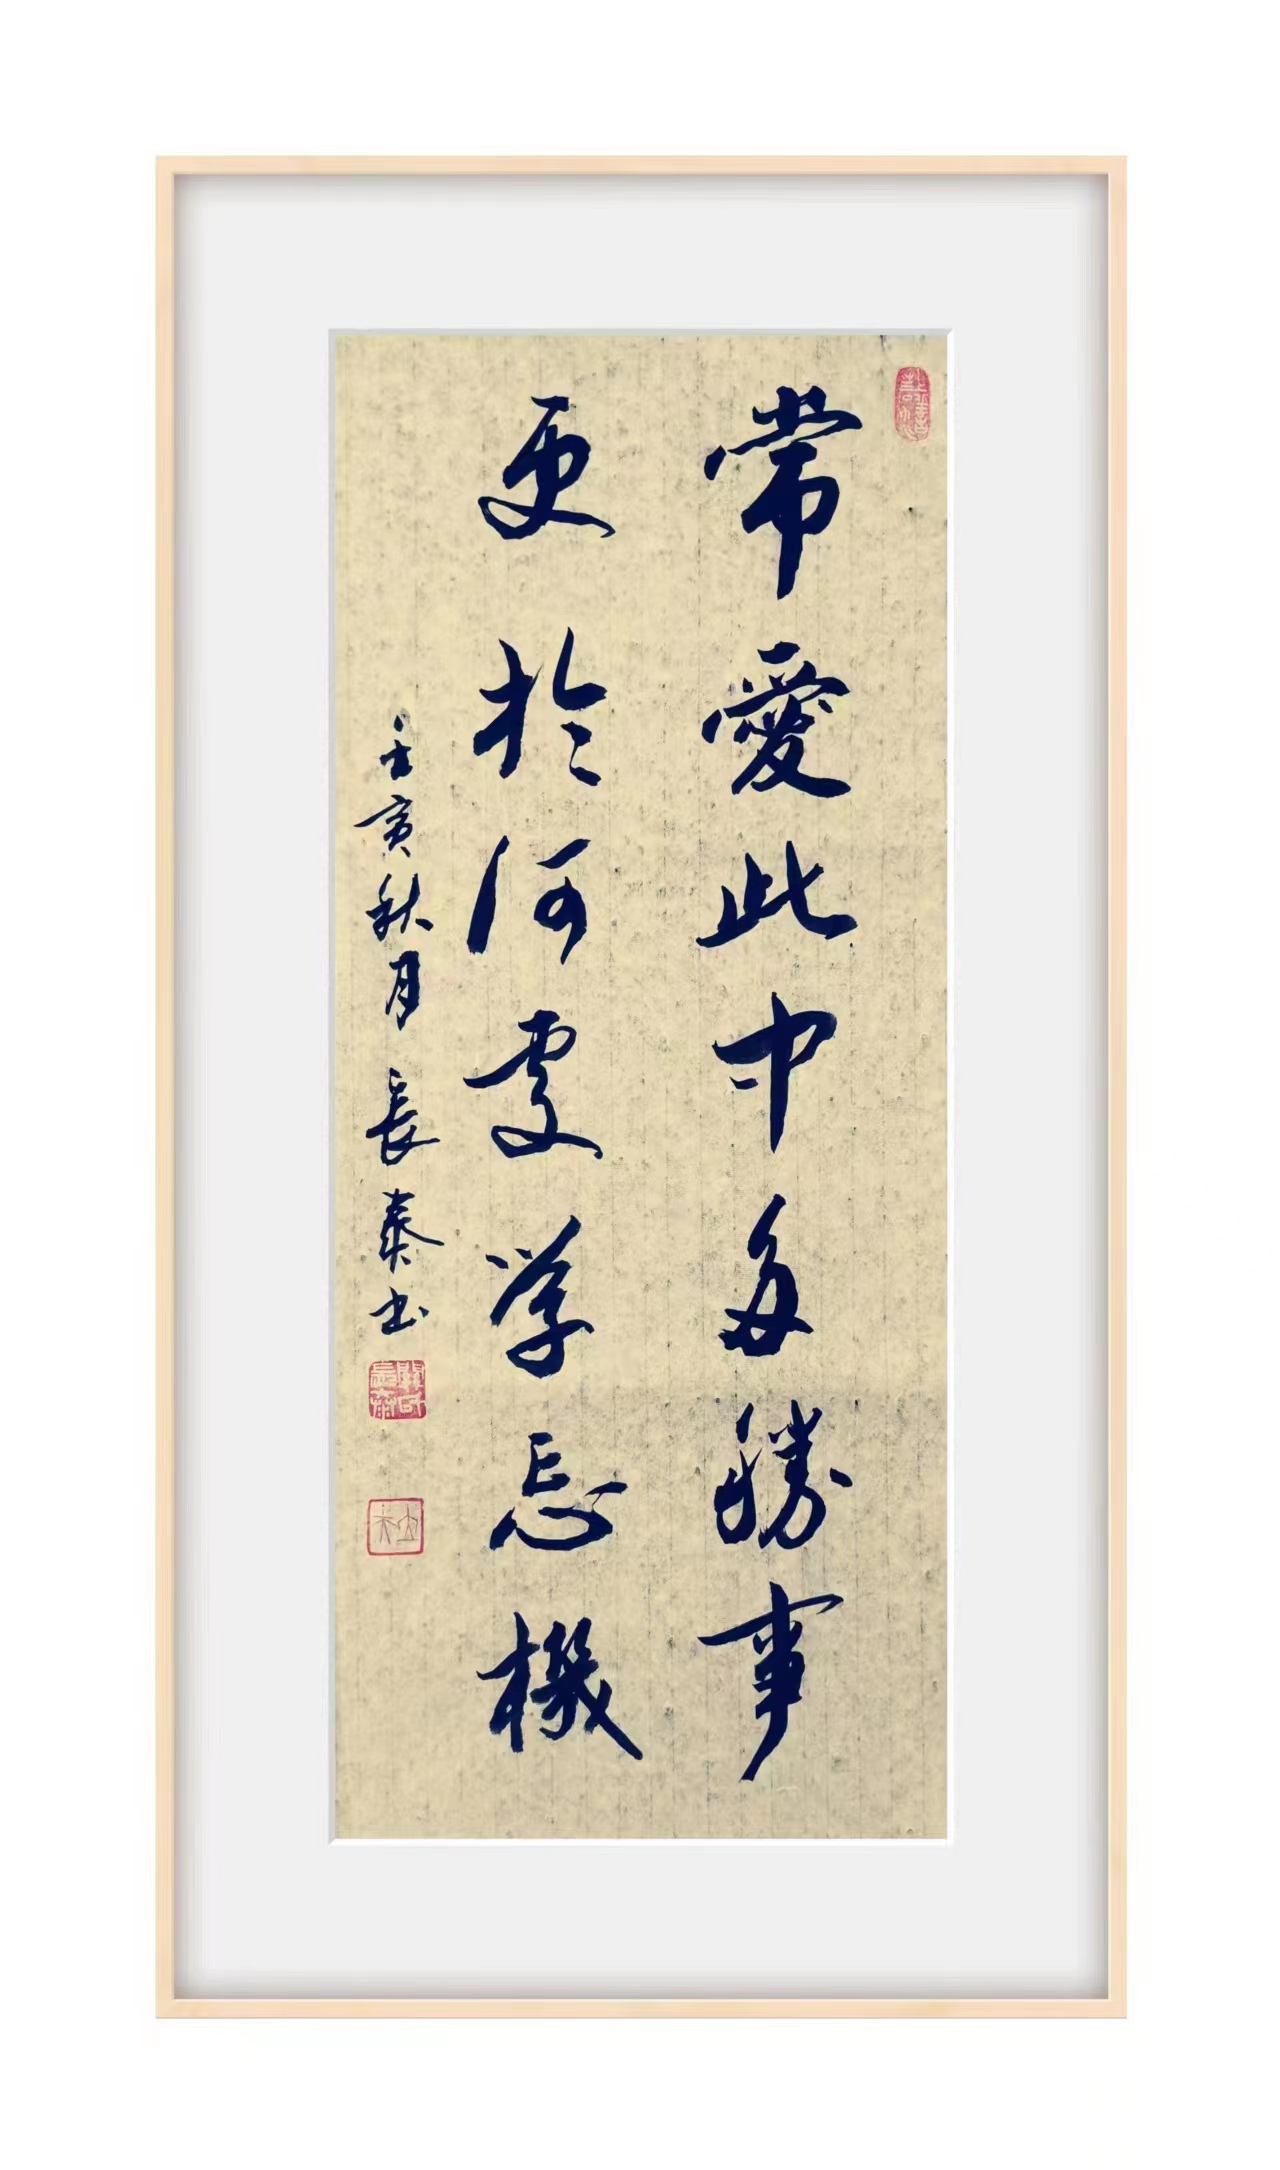 常愛此中多勝事
更於何處学忘機
壬寅秋月 長泰书